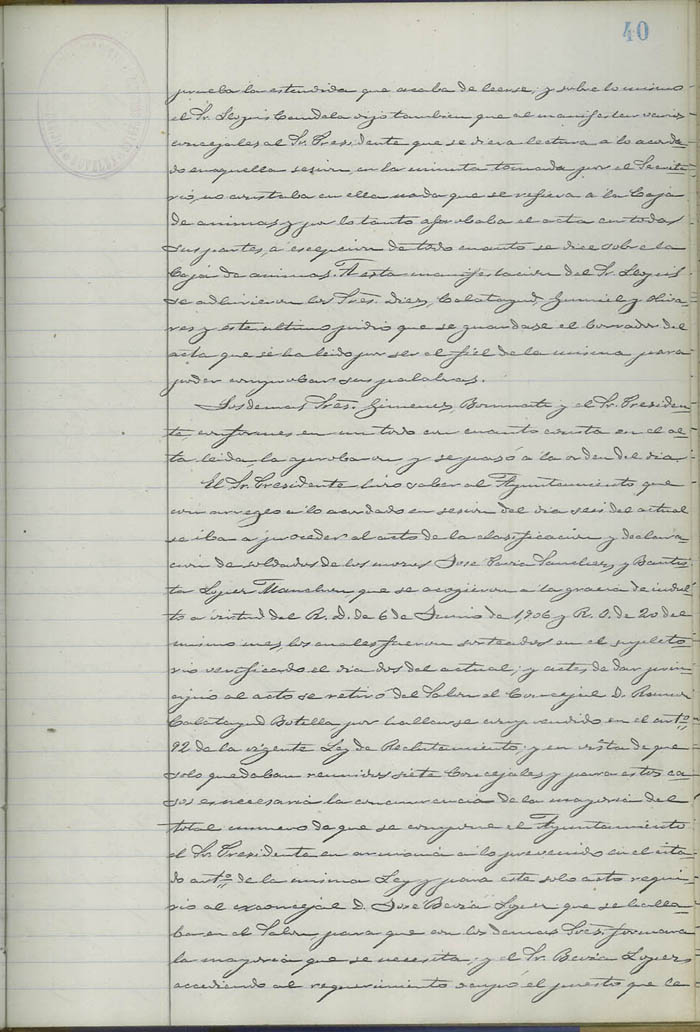 40
prueba la estendida que acaba de leerse; y sobre lo mismo
el Sr. Llopis Candela dijo tambien que al manifestar varios
concejales al Sr. Presidente que se diera lectura a lo acorda-
do en aquella sesion en la minuta tomada por el Secreta-
rio, no constaba en ella nada que se refiera a la Caja
de animas y por lo tanto aprobaba el acta en todas
sus partes, a escepcion de todo cuanto se dice sobre la
Caja de animas. A esta manifestacion del Sr. Llopis
se adhirieron los Sres. Diez, Calatayud, Gumiel y Oliva-
res y este ultimo pidió que se guardase el borrador del
acta que se ha leido por ser el fiel de la misma para
poder comprobar sus palabras.
Los demas Sres. Gimenez, Bonmati y el Sr. Presiden-
te, conformes en un todo con cuanto consta en el ac-
ta leida, la aprobaron y se pasó a la orden del dia.
El Sr. Presidente hizo saber al Ayuntamiento que
con arreglo a lo acordado en sesion del dia seis del actual
se iba a proceder al acto de la clasificacion y declara-
cion de soldados de los mozos José Sanchez y Bautis-
ta Lopez que se acogieron a la gracia de indul-
to a virtud del R. D. de 6 de Junio de 1906 y R. O. de 20 del
mismo mes, los cuales fueron sorteados en el supleto-
rio verificado el dia dos del actual; y antes de dar prin-
cipio al acto se retiró del Salon el Concejal D. Ramon
Calatayud Botella, por hallarse comprendido en el artº
92 de la vigente Ley de Reclutamiento; y en vista de que
solo quedaban reunidos siete Concejales y para estos ca-
sos es necesaria la concurrencia de la mayoria del
total numero de que se compone el Ayuntamiento
el Sr. Presidente en armonia a lo prevenido en el cita-
do artº de la misma Ley y para este solo acto requi-
rió al exconcejal D. José Beviá Lopez que se halla-
ba en el Salon para que con los demas Sres. formara
la mayoria que se necesita; y el Sr. Beviá Lopez
accediendo al requerimiento ocupó el puesto que le